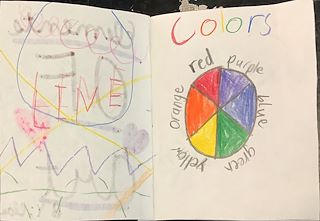 LINE
Colors
red
purple
blue
green
yellow
orange